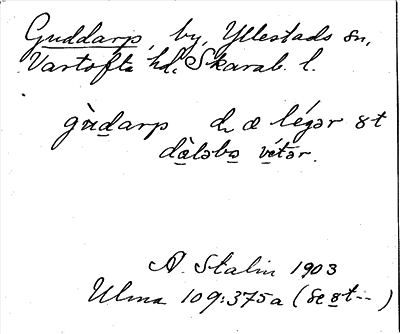 Guddarp, by, Yllestads sn,
Vartofta hd. Skarab. l.
gùdarp de æ légər št
dàləbə vétər.
A. Stalin 1903
Ulma 109:375a (se št--)